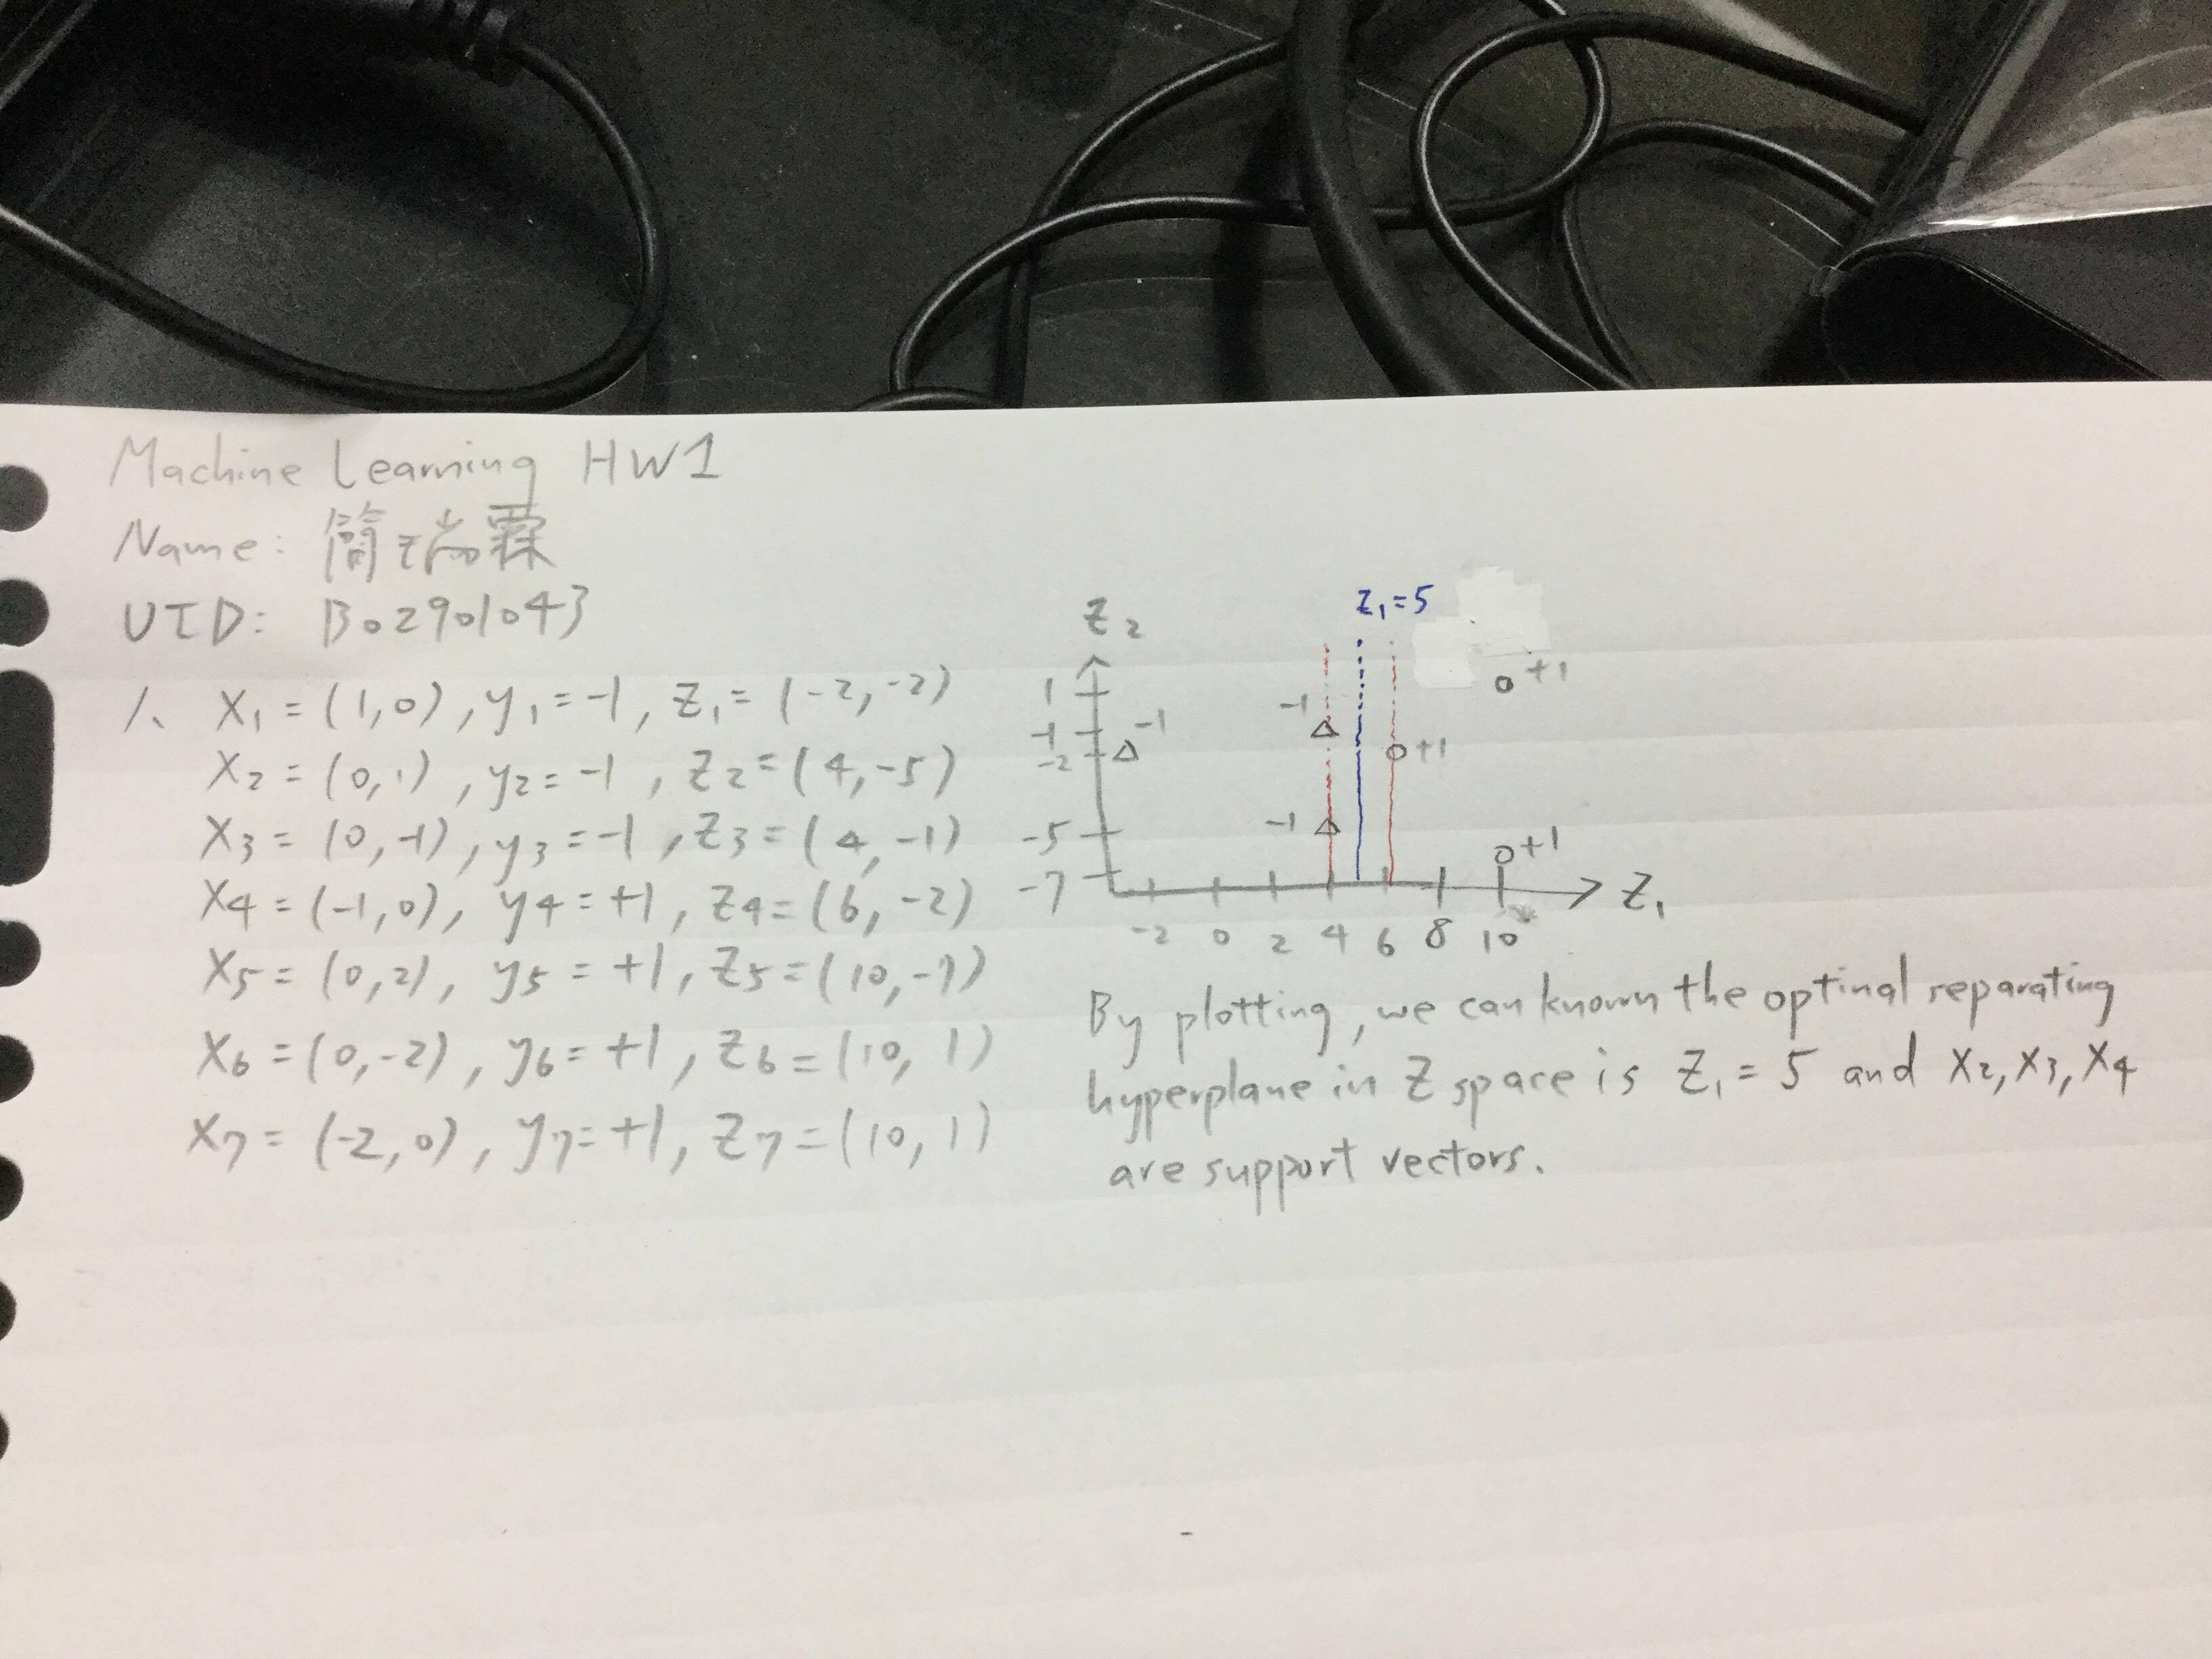 Machine Learning HW1
Name: 簡瑞霖
UID: B02901043
1、 X₁ = (1,0), y₁ = -1, Z₁ = (-2,-2)
X₂ = (0,1), y₂ = -1, Z₂ = (4,-5)
X₃ = (0,-1), y₃ = -1, Z₃ = (4,-1)
X₄ = (-1,0), y₄ = +1, Z₄ = (6,-2)
X₅ = (0,2), y₅ = +1, Z₅ = (10,-7)
X₆ = (0,-2), y₆ = +1, Z₆ = (10, 1)
X₇ = (-2,0), y₇ = +1, Z₇ = (10, 1)
Z₂
Z₁=5
1
-1
-2
-5
-7
-1
-1
-1
+1
+1
+1
-2 0 2 4 6 8 10
Z₁
By plotting, we can known the optinal separating
hyperplane in Z space is Z₁ = 5 and X₂, X₃, X₄
are support vectors.